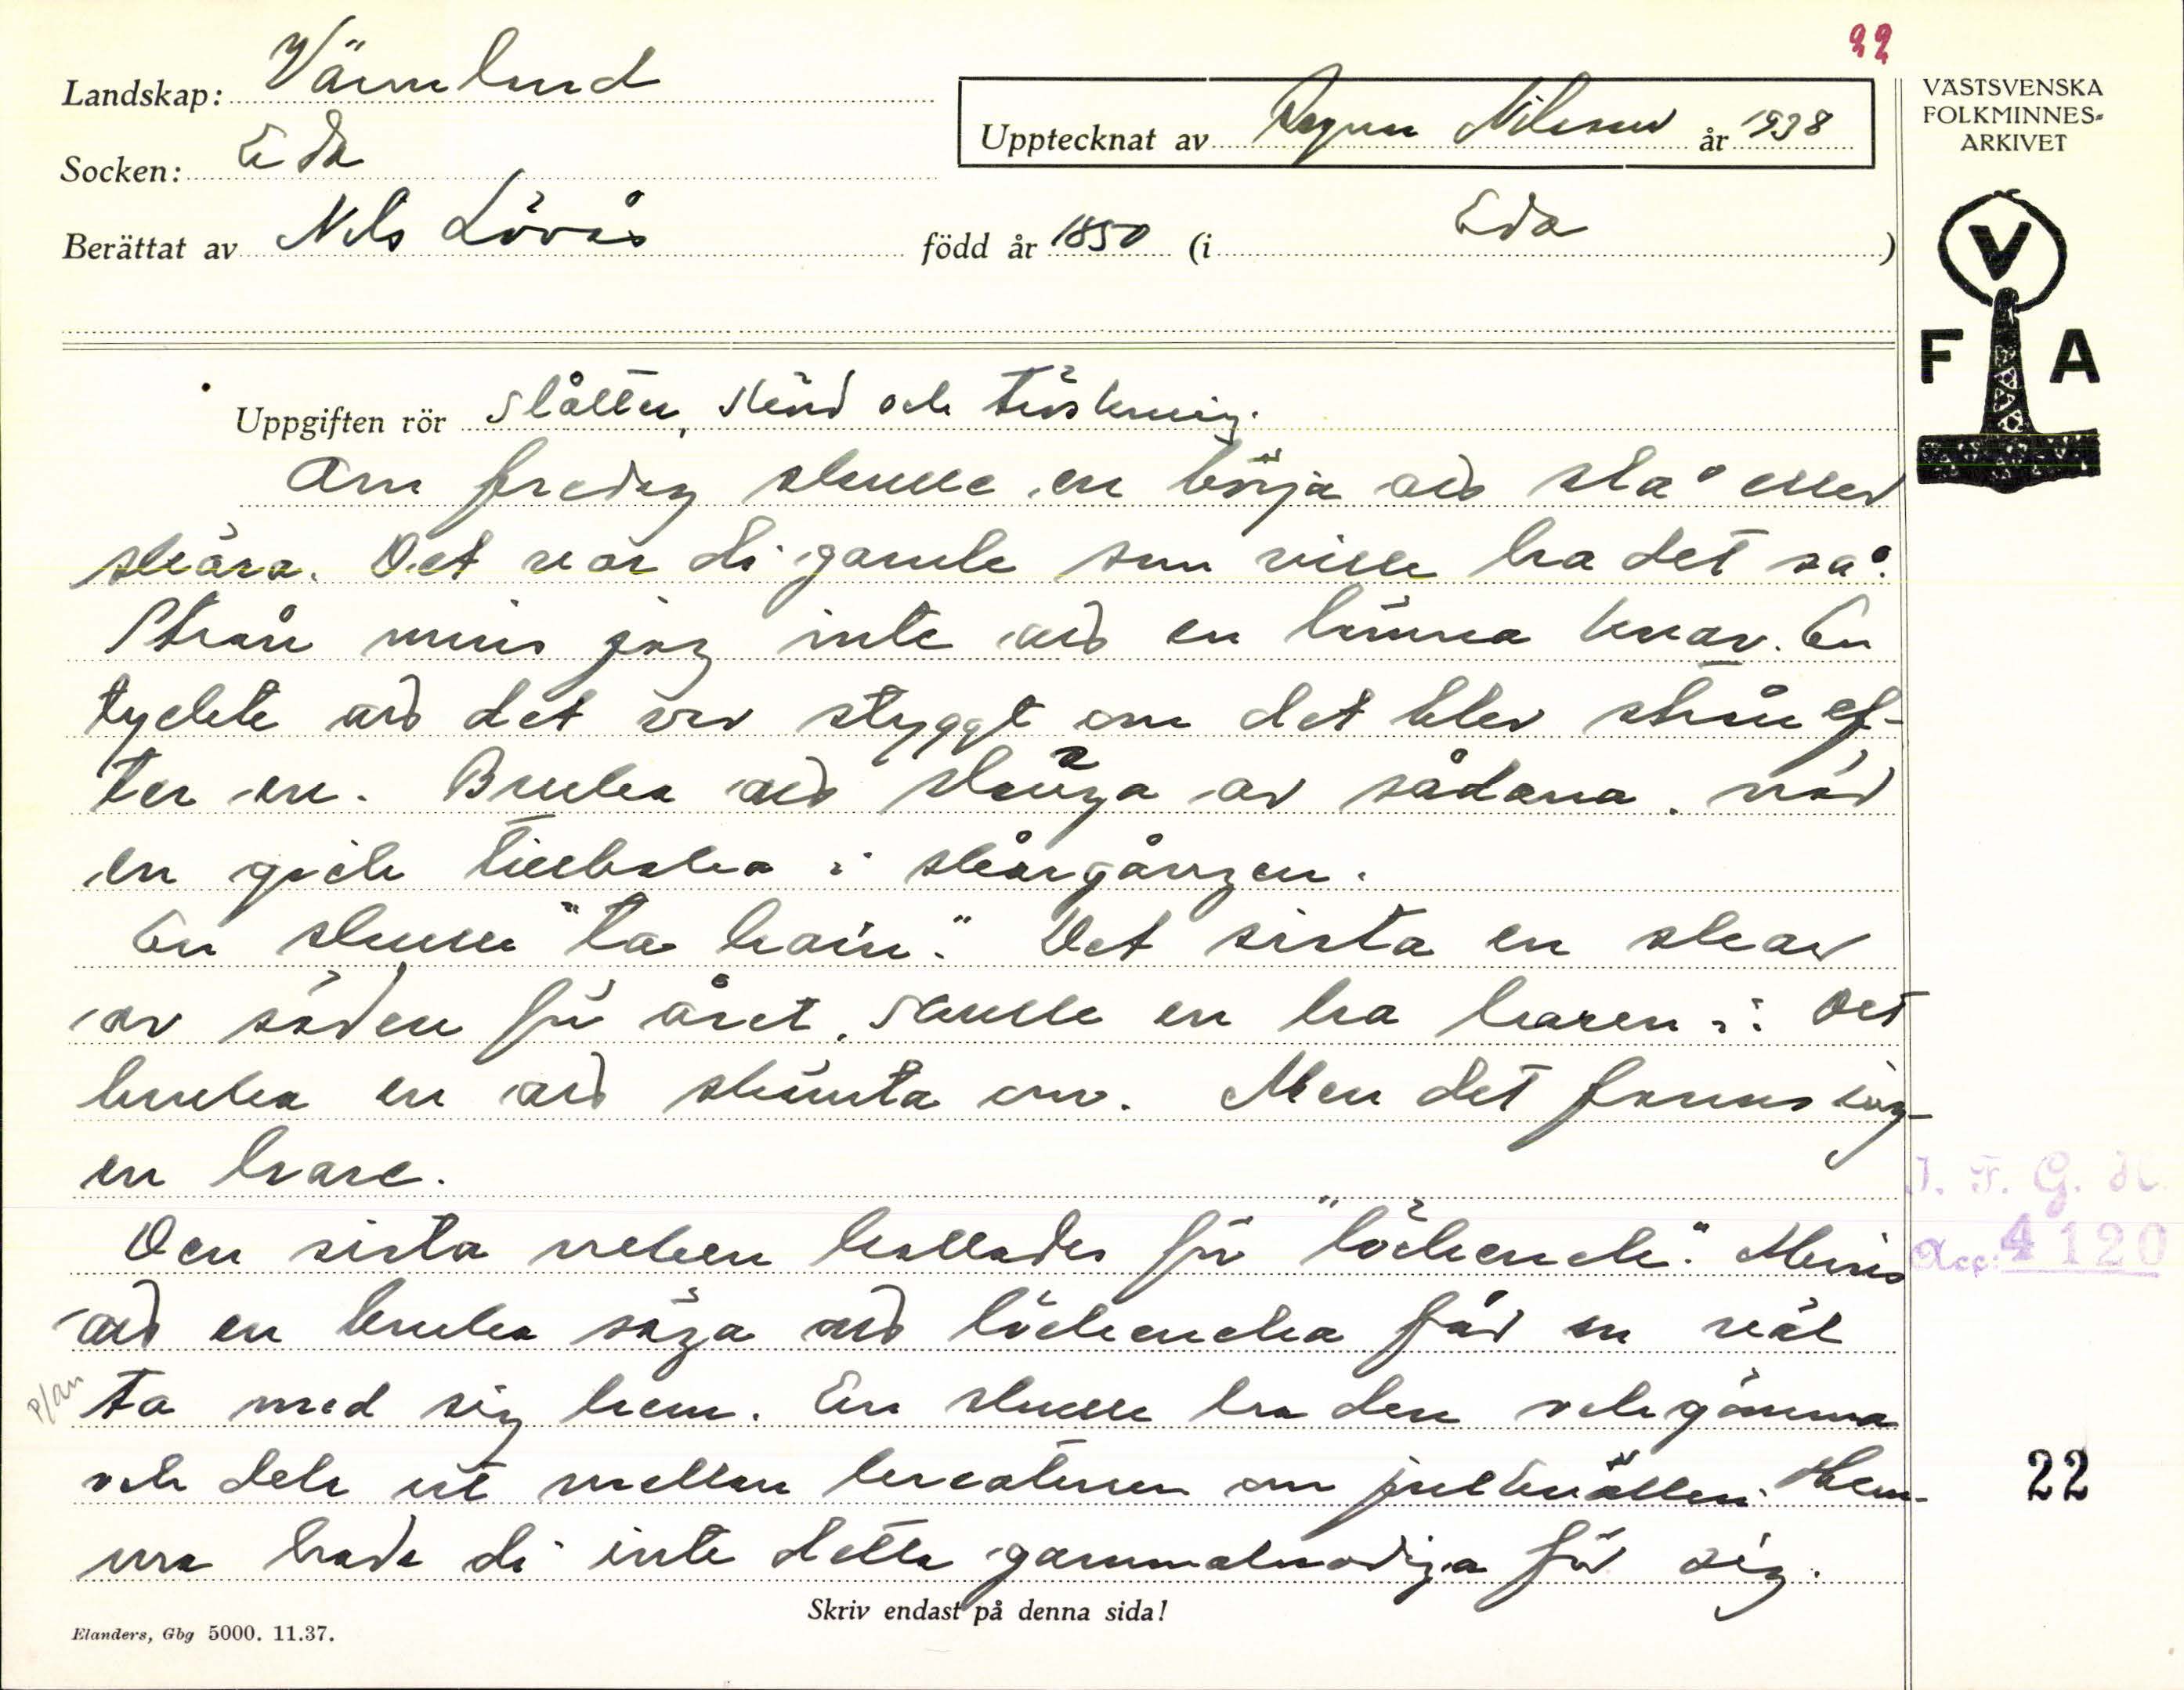 22
Landskap: Värmland
Upptecknat av Ragnar Nilsson år 1938
VÄSTSVENSKA
FOLKMINNES-
ARKIVET
Socken: Eda
Berättat av Nils Lövås född år 1850 (i Eda )
V
F A
Uppgiften rör Slåtter, skörd och tröskning.
Om fredag skulle en börja ad slå eller
skära. Det var di gamle som ville ha det så.
Strån minns jag inte ad en lämna kvar. En
tyckte ad det var styggt om det blev strån ef-
ter en. Bruka ad slänga av sådana, när
en gick tillbaka i skårgången.
En skulle "ta harin". Det sista en skar
av säden för året, skulle en ha haren i. Det
bruka en ad skämta om. Men det fanns ing-
en hare.
Den sista neken kallades för "löckenek". Minns
ad en bruka säga ad löckeneka får en väl
ta med sig hem. En skulle ha den och gömma
och dela ut mellan kreaturen om julkvällen. Hem-
ma hade di inte detta gammalmodiga för sig.
J. F. G. H.
Acc: 4120
22
Skriv endast på denna sida!
Elanders, Gbg 5000. 11.37.